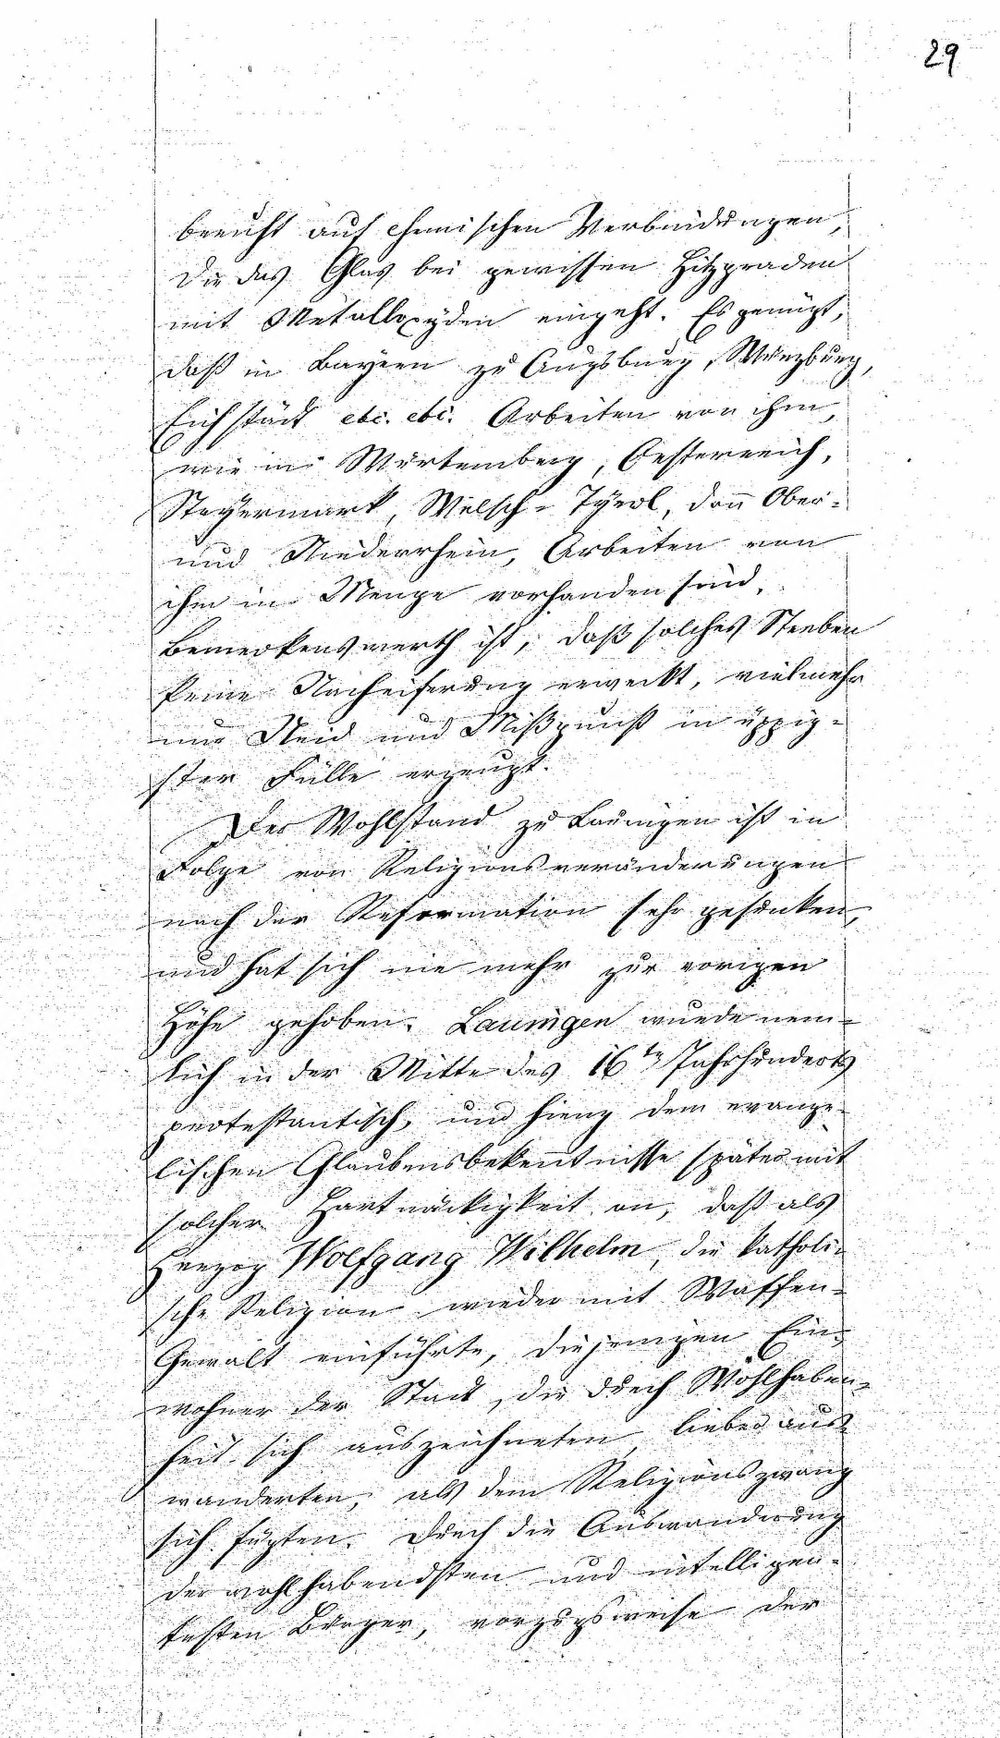 29
beruht auf chemischen Verbindungen,
die das Glas bei gewissen Hitzgraden
mit Metalloxyden eingeht. Es genügt,
daß in Bayern zu Augsburg, Würzburg,
Eichstädt etc. etc. Arbeiten von ihm,
wie in Würtemberg, Oesterreich,
Steyermark, Welsch-Tyrol, dan̅ Ober-
und Niederrhein, Arbeiten von
ihm in Menge vorhanden sind.
Bemerkenswerth ist, daß solches Streben
keine Nacheiferung erweckt, vielmehr
nur Neid und Mißgunst in üppig-
ster Fülle erzeugt.
Der Wohlstand zu Lauingen ist in
Folge von Religionsveränderungen
nach der Reformation sehr gesunken,
und hat sich nie mehr zur vorigen
Höhe gehoben. Lauingen wurde nem-
lich in der Mitte des 16ten Jahrhunderts
protestantisch, und hieng dem evange-
lischen Glaubensbekentnisse später mit
solcher Hartnäckigkeit an, daß als
Herzog Wolfgang Wilhelm, die katholi-
sche Religion wieder mit Waffen-
Gewalt einführte, diejenigen Ein-
wohner der Stadt, die durch Wohlhaben-
heit sich auszeichneten lieber aus-
wanderten, als dem Religionszwang
sich fügten. Durch die Auswanderung
der wohlhabendsten und intelligen-
testen Bürger, vorzugsweise der